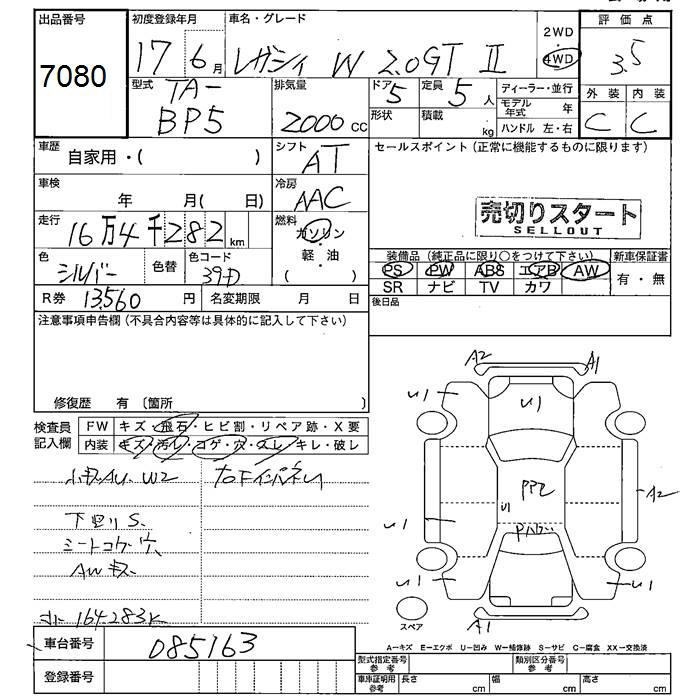 出品番号
7080
初度登録年月
17 6月
車名・グレード
レガシィ W 2.0GT II
2WD
4WD
評価点
3.5
型式
TA-
BP5
排気量
2000 cc
ドア
5
定員
5 人
形状
積載 kg
ディーラー・並行
モデル年式 年
ハンドル 左・右
外装 内装
C C
車歴
自家用・( )
シフト
AT
セールスポイント(正常に機能するものに限ります)
車検
年 月( 日)
冷房
AAC
売切りスタート
SELLOUT
走行
16万4千282km
燃料
ガソリン
・
軽・油
( )
色
シルバー
色替
色コード
39D
装備品(純正品に限り○をつけて下さい)
PS PW ABS エアB AW
SR ナビ TV カワ
新車保証書
有・無
R券 13,560 円
名変期限 月 日
後日品
注意事項申告欄(不具合内容等は具体的に記入して下さい)
修復歴 有 〔箇所 〕
検査員
記入欄
FW キズ・飛石・ヒビ割・リペア跡・X要
内装 キズ・汚レ・コゲ・穴・スレ・キレ・破レ
小キズAU W2
下回りS
シートコゲ穴
AWキズ
164283K
A2 A1
U1
U1
PP2
U1
A2
U1
U1 U1
A1
スペア
A-キズ E-エクボ U-凹み W-補修跡 S-サビ C-腐食 XX-交換済
車台番号
085163
登録番号
型式指定番号
参考
類別区分番号
参考
車庫証明用
参考
長さ cm
幅 cm
高さ cm